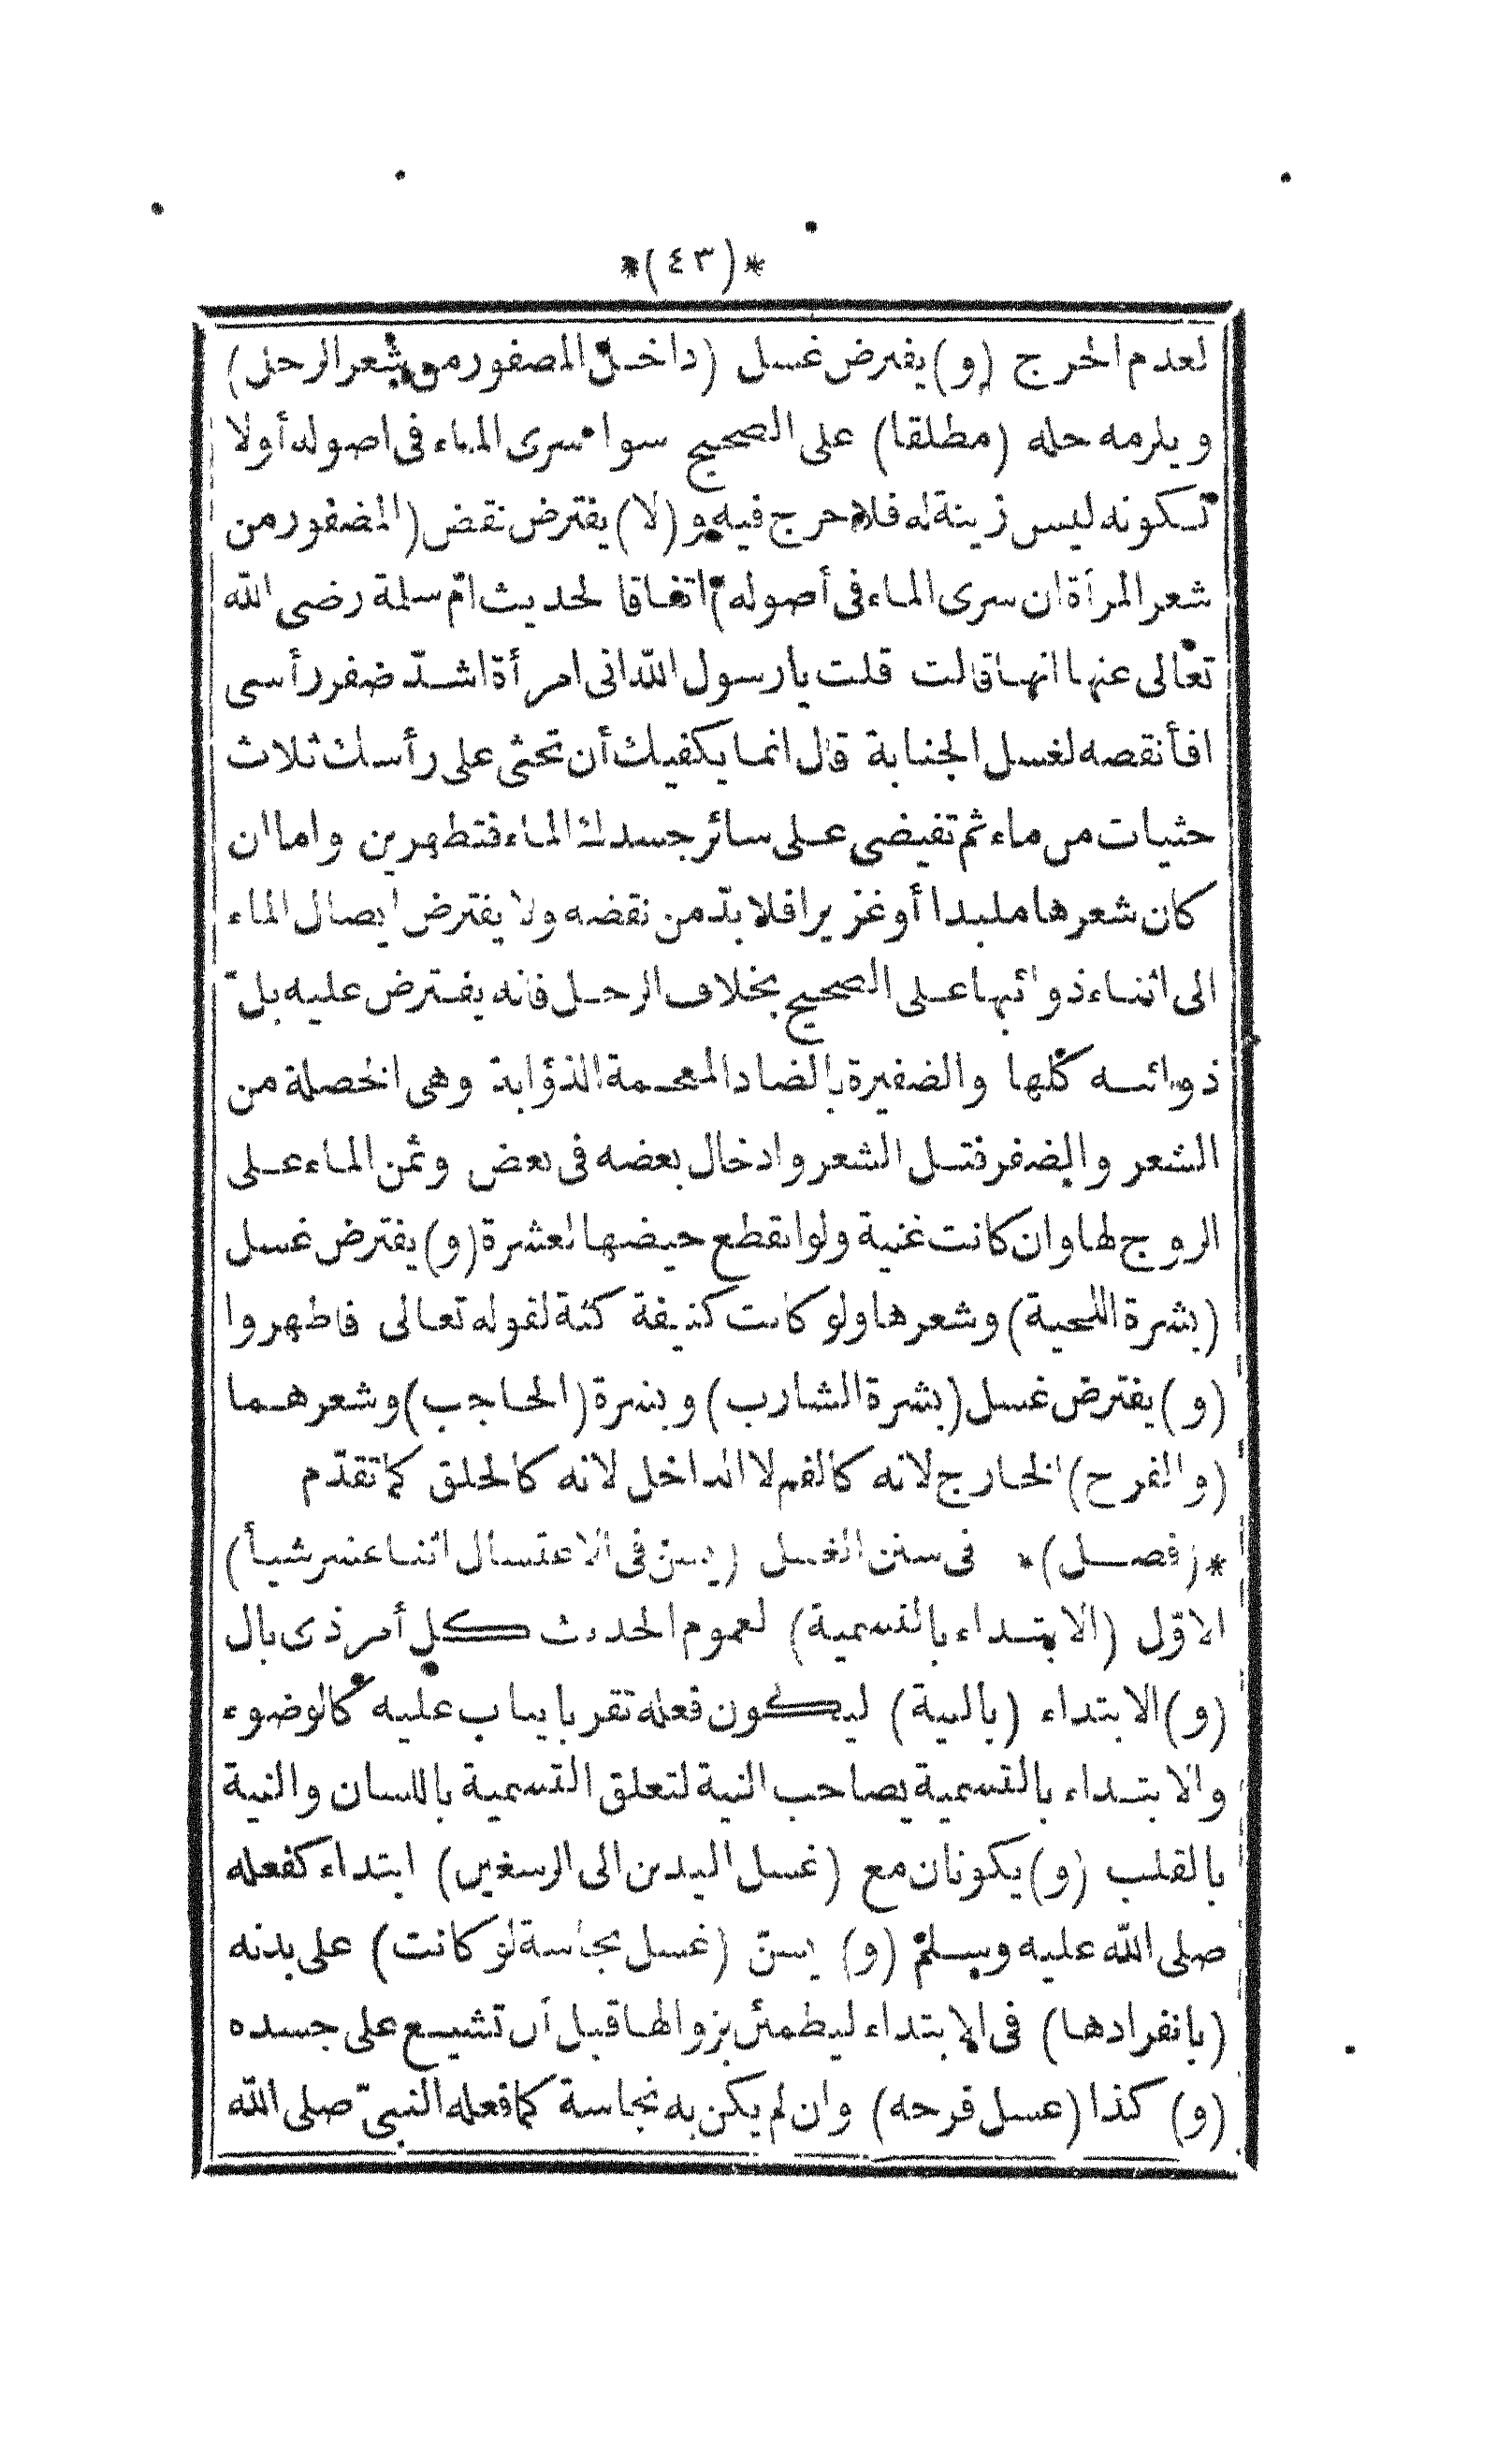 *(٤٣)*
لعدم الحرج (و) يفترض غسل (داخل المضفور من شعر الرجل)
ويلزمه حله (مطلقا) على الصحيح سواء سرى الماء فى اصوله أولا
لكونه ليس زينة له فلا حرج فيه و (لا) يفترض نقض (المضفور من
شعر المرأة ان سرى الماء فى أصوله) اتفاقا لحديث امّ سلمة رضى الله
تعالى عنها انها قالت قلت يا رسول الله انى امرأة اشدّ ضفر رأسى
افأنقضه لغسل الجنابة قال انما يكفيك أن تحثى على رأسك ثلاث
حثيات من ماء ثم تفيضى على سائر جسدك الماء فتطهرين واما ان
كان شعرها ملبدا أو غزيرا فلا بدّ من نقضه ولا يفترض ايصال الماء
الى اثناء ذوائبها على الصحيح بخلاف الرجل فانه يفترض عليه بلّ
ذوائبه كلها والضفيرة بالضاد المعجمة الذؤابة وهى الخصلة من
الشعر والضفر فتل الشعر وادخال بعضه فى بعض وثمن الماء على
الزوج لها وان كانت غنية ولو انقطع حيضها لعشرة (و) يفترض غسل
(بشرة اللحية) وشعرها ولو كانت كثيفة كثة لقوله تعالى فاطهروا
(و) يفترض غسل (بشرة الشارب) وبشرة (الحاجب) وشعرهما
(والفرج) الخارج لانه كالفم لا الداخل لانه كالحلق كما تقدّم
*(فصل)* فى سنن الغسل (يسنّ فى الاغتسال اثنا عشر شيأ)
الاوّل (الابتداء بالتسمية) لعموم الحديث كل أمر ذى بال
(و) الابتداء (بالنية) ليكون فعله تقربا يثاب عليه كالوضوء
والابتداء بالتسمية يصاحب النية لتعلق التسمية باللسان والنية
بالقلب (و) يكونان مع (غسل اليدين الى الرسغين) ابتداء كفعله
صلى الله عليه وسلم (و) يسنّ (غسل نجاسة لو كانت) على بدنه
(بانفرادها) فى الابتداء ليطمئن بزوالها قبل أن تشيع على جسده
(و) كذا (غسل فرجه) وان لم يكن به نجاسة كما فعله النبىّ صلى الله